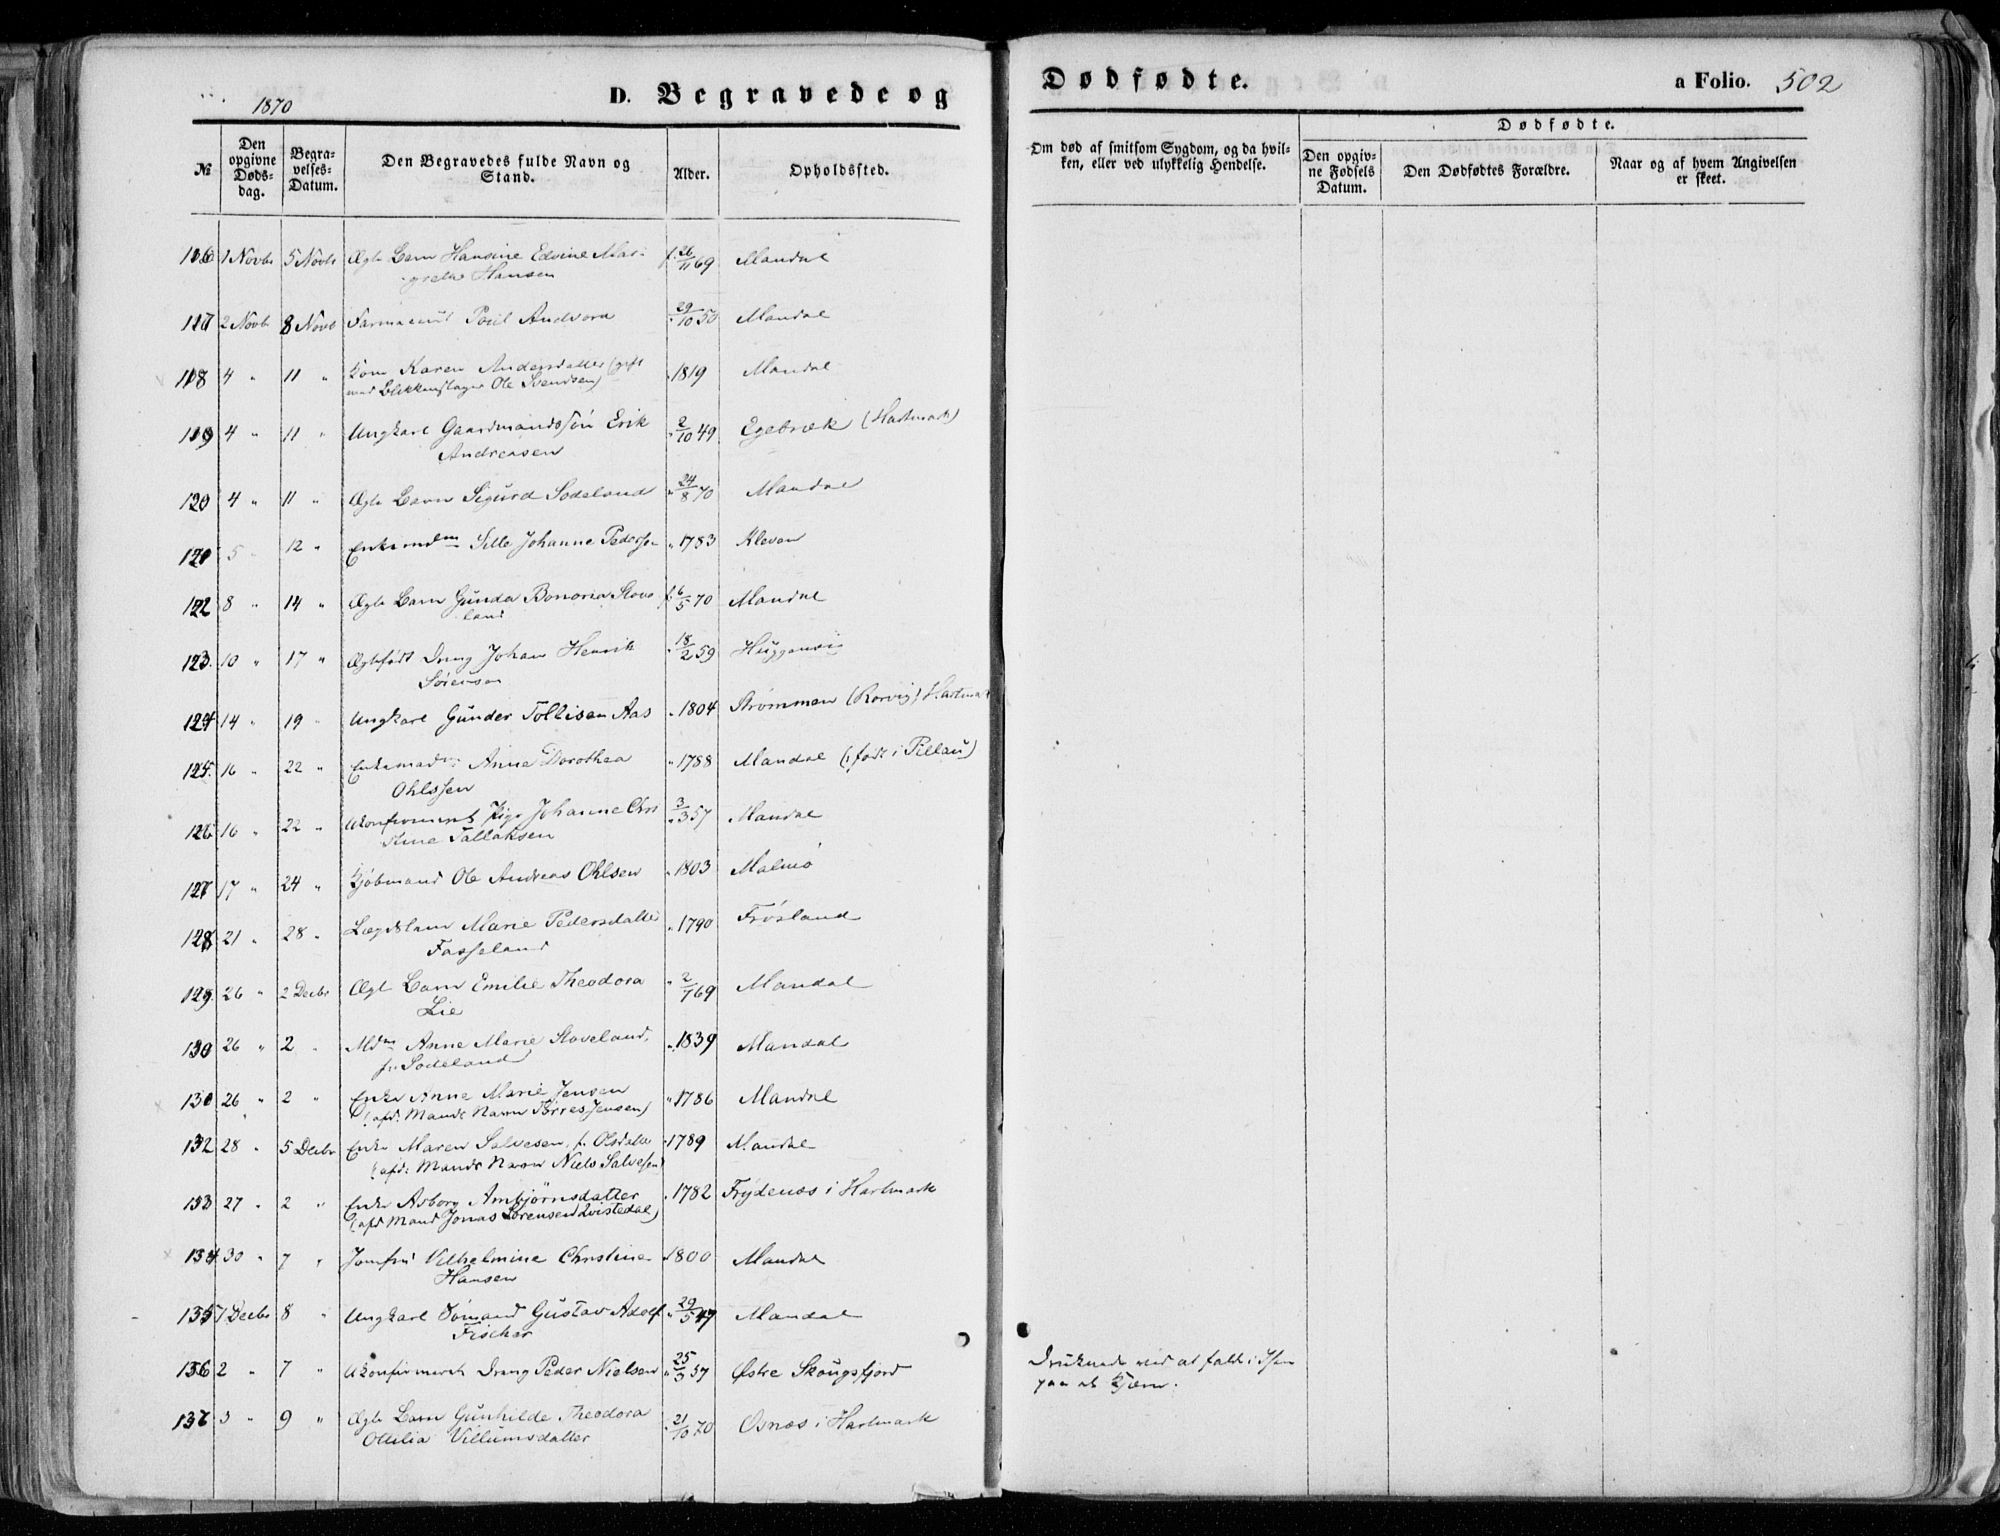 1870
D. Begravede og
Dødfødte.
a Folio. 502
№
Den opgivne Døds-dag.
Begra-velses-Datum.
Den Begravedes fulde Navn og Stand.
Alder.
Opholdssted.
Om død af smitsom Sygdom, og da hvil-ken, eller ved ulykkelig Hendelse.
Dødfødte.
Den opgiv-ne Fødsels Datum.
Den Dødfødtes Forældre.
Naar og af hvem Angivelsen er skeet.
116 1 Novbr 5 Novbr Ægte Barn Hansine Edvine Mar- f. 26/11 69 Mandal
grethe Hansen
117 2 Novbr 8 Novbr Farmaceut Poul Andvord 29/10 50 Mandal
118 4 " 11 " Kone Karen Andersdatter (gift " 1819 Mandal
med Blikkenslager Ole Svendsen)
119 4 " 11 " Ungkarl Gaardmandssøn Erik " 2/10 49 Egebræk (Hartmark)
Andreasen
120 4 " 11 " Ægte Barn Sigurd Sodeland " 24/8 70 Mandal
121 5 " 12 " Enkemdm Sille Johanne Pedersen " 1783 Kleven
122 8 " 14 " Ægte Barn Gunda Bonoria Stove f. 6/5 70 Mandal
land
123. 10 " 17 " Ægtefødt Dreng Johan Henrik " 18/2 59
Sørensen
124 14 " 19 " Ungkarl Gunder Tollisen Aas " 1804 Strømmen (Rorvig) Hartmark
125. 16 " 22 " Enkemadm: Anne Dorothea " 1788 Mandal (født i Pillau)
Ohlssen
126 16 " 22 " Ukonfirmeret Pige Johanne Chri " 3/3 57 Mandal
stine Tallaksen
127 17 " 24 " Kjøbmand Ole Andreas Ohlsen " 1803 Malmø
128 21 " 28 " Lægdslem Marie Pedersdatter " 1790 Frøsland
Fasseland
129. 26 " 2 Decbr Ægt Barn Emilie Theodora " 2/7 69 Mandal
Lie
130 26 " 2 " Mdm Anne Marie Stoveland, " 1839 Mandal
f. Sodeland
131 26 " 2 " Enke Anne Marie Jensen " 1786 Mandal
(afd: Mands Navn Tørres Jensen)
132 28 " 5 Decbr Enke Maren Salvesen f. Olsdatter " 1789 Mandal
(afd: Mands Navn Niels Salvesen)
133 27 " 2 " Enke Asborg Ambjørnsdatter " 1782 Frydenæs i Hartmark
(afd Mand Jonas Sørensen Qvistedal)
134 30 " 7 " Jomfru Vilhelmine Christine " 1800 Mandal
Hansen
135 1 Decbr 8 " Ungkarl Sømand Gustav Adolf " 29/5 47 Mandal
Fischer
136 2 " 7 " Ukonfirmeret Dreng Peder Nielsen " 25/3 57 Østre Skougsfjord Druknede ved at falde i Isen
paa et Kjærn.
137 3 " 9 " Ægte Barn Gunhilde Theodora " 21/10 70 Osnæs i Hartmark
Ottilia Villumsdatter